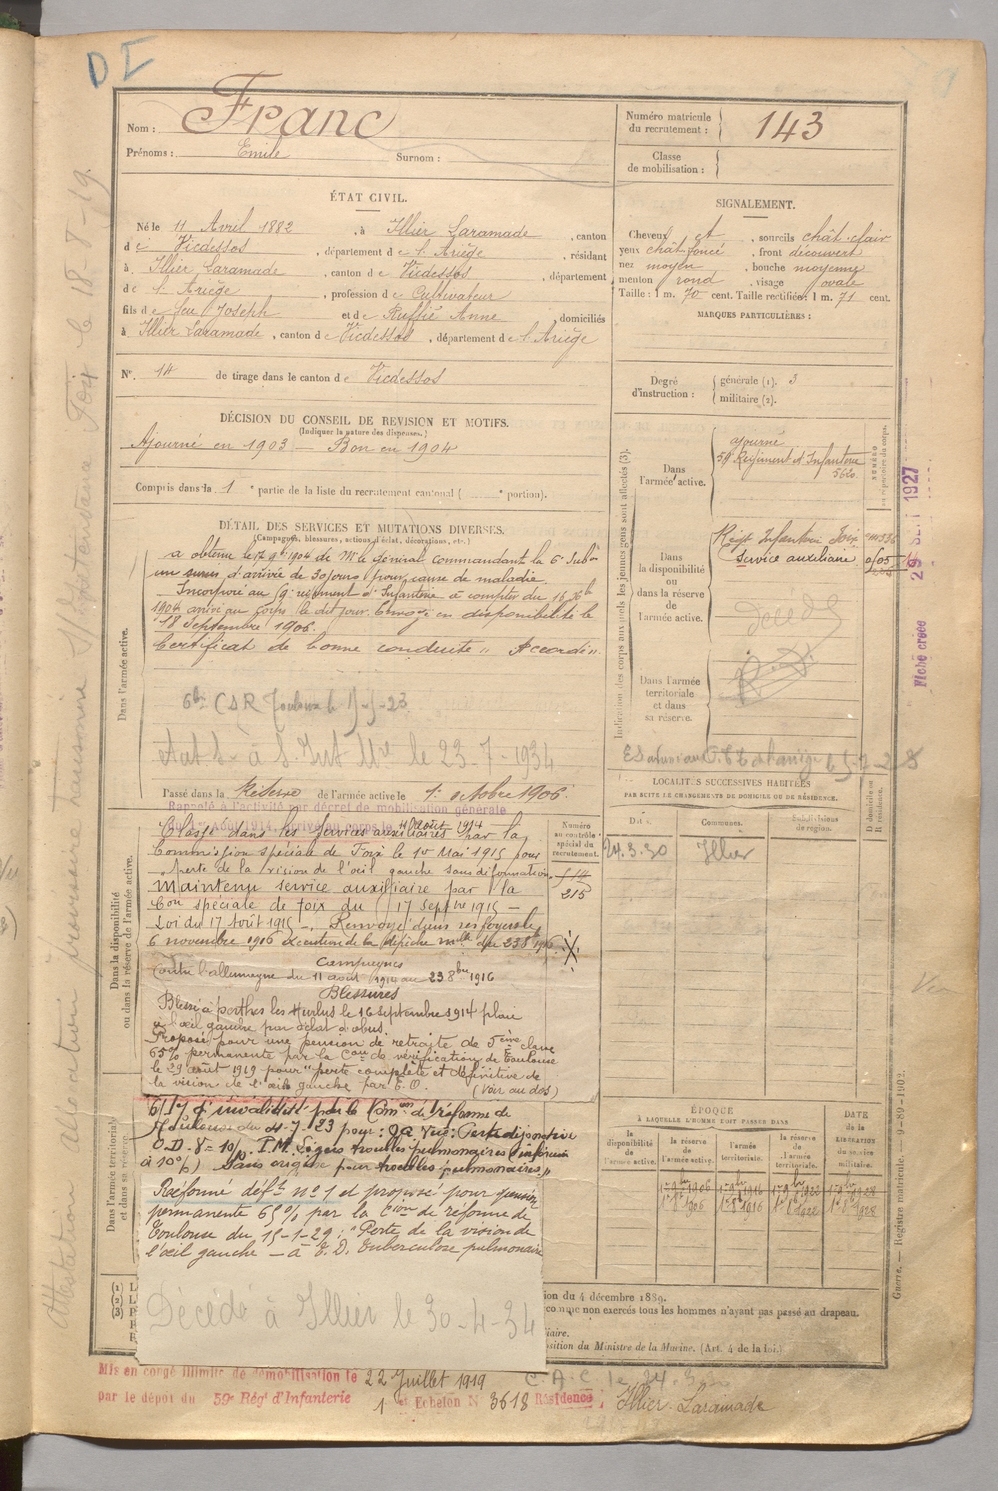 D I
Nom : Franc
Prénoms : Emile Surnom :
Numéro matricule du recrutement : 143
Classe de mobilisation :
ÉTAT CIVIL.
Né le 11 Avril 1882, à Illier Laramade, canton
de Vicdessos, département de l'Ariège, résidant
à Illier Laramade, canton de Vicdessos, département
de l'Ariège, profession de Cultivateur
fils de feu Joseph et de Ruffié Anne, domiciliés
à Illier Laramade, canton de Vicdessos, département de l'Ariège
N° 14 de tirage dans le canton de Vicdessos
SIGNALEMENT.
Cheveux et, sourcils chât clair
yeux chât foncé, front découvert
nez moyen, bouche moyenne
menton rond, visage ovale
Taille : 1 m. 70 cent. Taille rectifiée : 1 m. 71 cent.
MARQUES PARTICULIÈRES :
Degré d'instruction : générale (1). 3
militaire (2).
DÉCISION DU CONSEIL DE REVISION ET MOTIFS.
(Indiquer la nature des dispenses.)
Ajourné en 1903 — Bon en 1904
Compris dans la 1 e partie de la liste du recrutement cantonal ( e portion).
DÉTAIL DES SERVICES ET MUTATIONS DIVERSES.
(Campagnes, blessures, actions d'éclat, décorations, etc.)
Dans l'armée active.
a obtenu le 7 9bre 1904 de Mr le Général commandant la 6e Subon
un sursis d'arrivée de 30 jours pour cause de maladie.
Incorporé au 59e régiment d'Infanterie à compter du 16 Xbre
1904 arrivé au corps le dit jour. Envoyé en disponibilité le
18 Septembre 1906.
Certificat de bonne conduite "Accordé".
CSR Toulouse le
à S. Int Mre le 23-7-1934
Passé dans la Réserve de l'armée active le 1er octobre 1906.
Rappelé à l'activité par décret de mobilisation générale
du 1er Août 1914, arrivé au corps le 11 août 1914
Dans la disponibilité ou dans la réserve de l'armée active.
Classé dans les services auxiliaires par la
Commission spéciale de Foix le 1er Mai 1915 pour
perte de la vision de l'œil gauche sans déformation.
Maintenu service auxiliaire par la
Con spéciale de Foix du 17 septbre 1915 —
Loi du 17 Août 1915 —. Renvoyé dans ses foyers le
6 novembre 1916 exécution de la dépêche mlle du 23 8bre 1916.
Campagnes
Contre l'allemagne du 11 août 1914 au 23 8bre 1916
Blessures
Blessé à perthes les Hurlus le 16 septembre 1914 plaie
à l'œil gauche par éclat d'obus.
Proposé pour une pension de retraite de 5ème classe
65% permanente par la Con de vérification de Toulouse
le 29 août 1919 pour "perte complète et définitive de
la vision de l'œil gauche par E.O. (Voir au dos)
Numéro au contrôle spécial du recrutement.
514
215
Dans l'armée territoriale et dans sa réserve.
d'invalidité par la Comon de réforme de
Toulouse du 4-7-23 pour :
O.D. V = 10/ . Légers troubles pulmonaires (inférieur
à 10%) Sans origine pour troubles pulmonaires."
Réformé défif n° 1 et proposé pour pension
permanente 65% par la Cion de réforme de
Toulouse du 15-1-29 : "Perte de la vision de
l'œil gauche — à E. D. tuberculose pulmonaire
Décédé à Illier le 30-4-34
Indication des corps auxquels les jeunes gens sont affectés (3).
Dans l'armée active.
ajourné
59 Régiment d'Infanterie
5620
NUMÉRO au répertoire du corps.
Dans la disponibilité ou dans la réserve de l'armée active.
Régt Infanterie Foix
Service auxiliaire
décédé
Dans l'armée territoriale et dans sa réserve.
LOCALITÉS SUCCESSIVES HABITÉES
PAR SUITE DE CHANGEMENTS DE DOMICILE OU DE RÉSIDENCE.
Dates. Communes. Subdivisions de région. D domicile ou R résidence.
24.3.30 Illier
ÉPOQUE
À LAQUELLE L'HOMME DOIT PASSER DANS
DATE DE LA LIBÉRATION DU SERVICE militaire.
la disponibilité de l'armée active. la réserve de l'armée active. l'armée territoriale. la réserve de l'armée territoriale.
1er 8bre 1906 1er 8bre 1916 1er 8bre 1922 1er 8bre 1928
ion du 4 décembre 1889.
non exercés tous les hommes n'ayant pas passé au drapeau.
iaire.
osition du Ministre de la Marine. (Art. 4 de la loi.)
Guerre. — Registre matricule. — 9-89-1902.
Mis en congé illimité de démobilisation le 22 Juillet 1919
par le dépôt du 59e Rég d'Infanterie 1er Echelon N° 3618 Résidence, Illier-Laramade
C.A.C. le 24.3.
Fiche créée 29 SEPT 1927